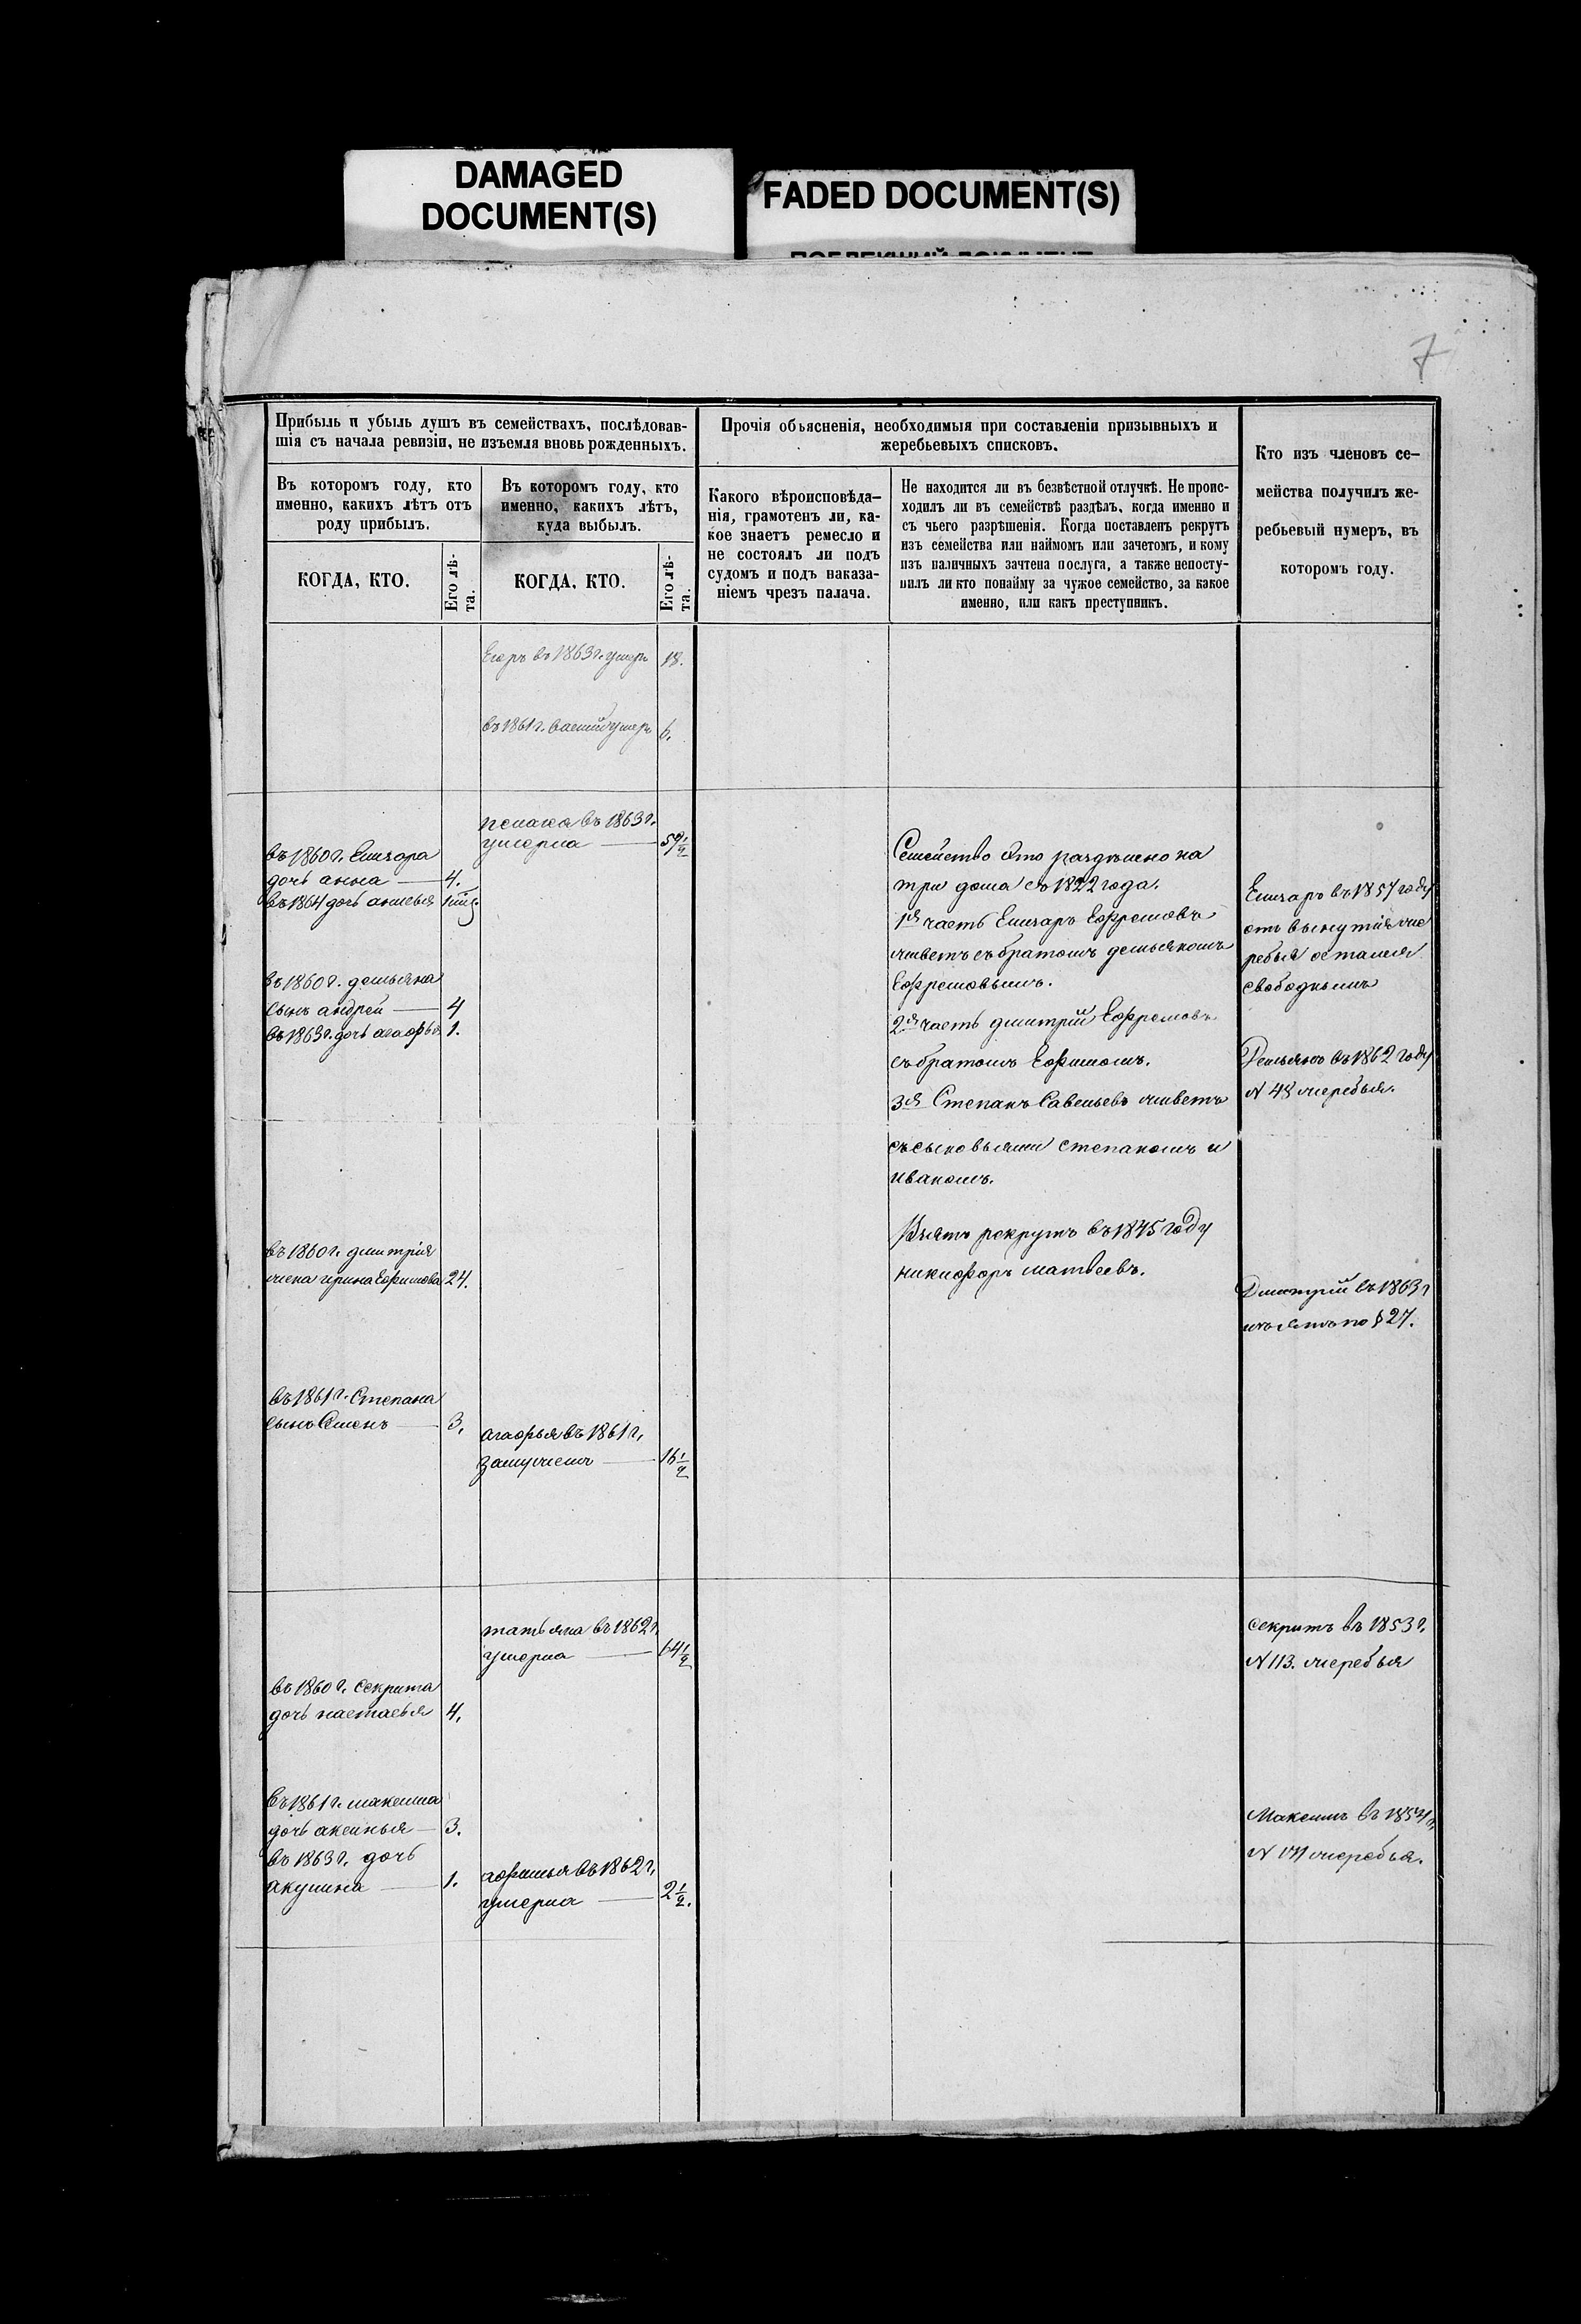 DAMAGED
DOCUMENT(S)
FADED DOCUMENT(S)
7
Прибыль и убыль душъ въ семействахъ, послѣдовав-
шія съ начала ревизіи, не изъемля вновь рожденныхъ.
Прочія объясненія, необходимыя при составленіи призывныхъ и
жеребьевыхъ списковъ.
Кто изъ членовъ се-
мейства получилъ же-
ребьевый нумеръ, въ
которомъ году.
Въ которомъ году, кто
именно, какихъ лѣтъ отъ
роду прибылъ.
Въ которомъ году, кто
именно, какихъ лѣтъ,
куда выбылъ.
Какого вѣроисповѣда-
нія, грамотенъ ли, ка-
кое знаетъ ремесло и
не состоялъ ли подъ
судомъ и подъ наказа-
ніемъ чрезъ палача.
Не находится ли въ безвѣстной отлучкѣ. Не проис-
ходилъ ли въ семействѣ раздѣлъ, когда именно и
съ чьего разрѣшенія. Когда поставленъ рекрутъ
изъ семейства или наймомъ или зачетомъ, и кому
изъ наличныхъ зачтена послуга, а также непосту-
пилъ ли кто понайму за чужое семейство, за какое
именно, или какъ преступникъ.
КОГДА, КТО.
Его лѣ-
та.
КОГДА, КТО.
Его лѣ-
та.
Егоръ въ 1863 г. умеръ 18.
въ 1861 г. Василій умеръ 6.
въ 1863 г.
умерла 59 1/2
въ 1860 г. Елизара
дочь анна 4.
въ 1864 дочь
въ 1860 г. демьяна
сынъ андрей 4
въ 1863 г. дочь агафья 1.
въ 1860 г. дмитрія
жена ирина Ефимова 24.
въ 1861 г. Степана
сынъ Семенъ 3.
агафья въ 1861 г.
замужемъ 16 1/2
татьяна въ 1862 г.
умерла 64 1/2
въ 1860 г. секрита
дочь настасья 4.
въ 1861 г. максима
дочь аксинья 3.
въ 1863 г. дочь
акулина 1.
афимья въ 1862 г.
умерла 2 1/2.
Семейство это раздѣлено на
три дома съ 1822 года.
1я часть Елизаръ Ефремовъ
живетъ съ братомъ демьяномъ
Ефремовымъ.
2я часть дмитрій Ефремовъ
съ братомъ Ефимомъ.
3я Степанъ Савельевъ живетъ
съ сыновьями степаномъ и
иваномъ.
Взятъ рекрутъ въ 1845 году
никифоръ матвеевъ.
Елизаръ въ 1854 году
отъ вынутія же
ребья остался
свободнымъ
Демьянъ въ 1862 году
№ 48 жеребья.
Дмитрій въ 1863 г
изъятъ по § 27.
секритъ въ 1853 г.
№ 113. жеребья
Максимъ въ 1854 г.
№ жеребья.